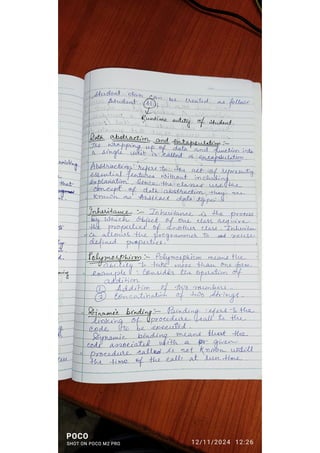 Student class can be created as follows
Student S1;
Runtime entity of student.
Data abstraction and Encapsulation :-
The wrapping up of data and function into
a single unit is called as encapsulation.
Abstraction refers to the act of representing
essential features without including
explanation. Since the classes use the
concept of data abstraction they are
known as Abstract data types.
Inheritance :- Inheritance is the process
by which object of one class acquire
the properties of another class.
is allows the programmer to reuse
defined properties.
Polymorphism :- Polymorphism means the
ability to take more than one form
example :- Consider the operation of
addition.
① Addition of two numbers.
② Concatination of two strings.
Dynamic binding :- Binding refers to the
linking of procedure call to the
code to be executed.
Dynamic binding means that the
code associated with a given
procedure called is not known untill
the time of the call at run time.
POCO
SHOT ON POCO M2 PRO
12/11/2024 12:26